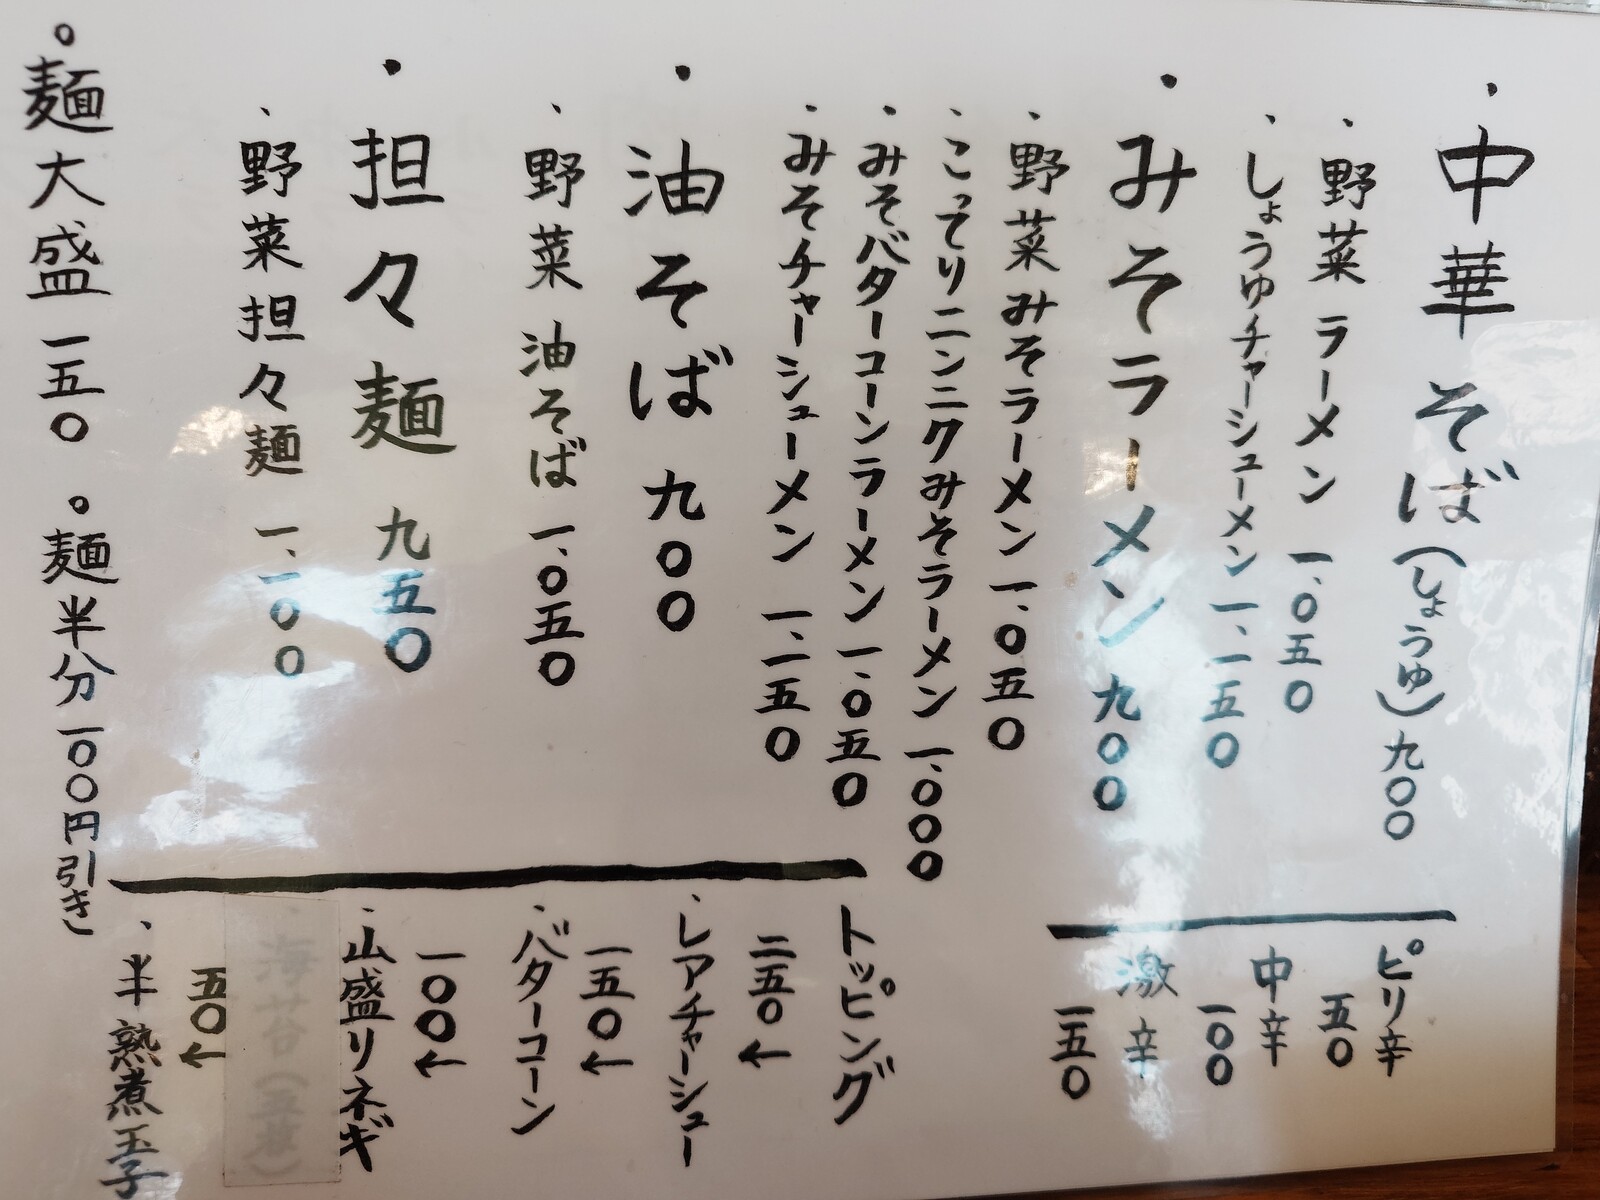 ・中華そば(しょうゆ)九〇〇
、野菜ラーメン 一、〇五〇
、しょうゆチャーシューメン 一、一五〇
・みそラーメン 九〇〇
、野菜みそラーメン 一、〇五〇
、こってりニンニクみそラーメン 一、〇〇〇
、みそバターコーンラーメン 一、〇五〇
、みそチャーシューメン 一、一五〇
・油そば 九〇〇
、野菜油そば 一、〇五〇
・担々麺 九五〇
、野菜担々麺 一、一〇〇
。麺大盛一五〇 。麺半分一〇〇円引き
ピリ辛
五〇
中辛
一〇〇
激辛
一五〇
トッピング
二五〇←
、レアチャーシュー
一五〇←
、バターコーン
一〇〇←
、山盛りネギ
、海苔(五枚)
五〇←
、半熟煮玉子